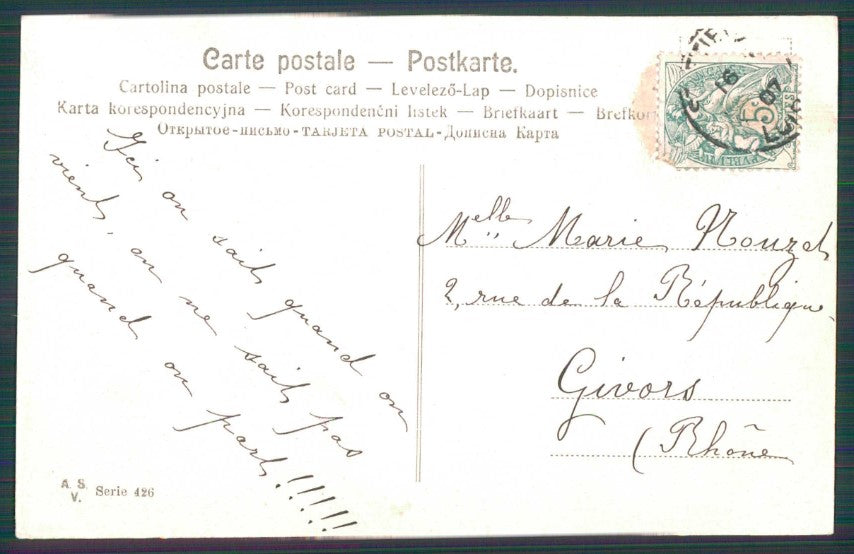 Carte postale — Postkarte.
Cartolina postale — Post card — Levelező-Lap — Dopisnice
Karta korespondencyjna — Korespondenčni listek — Briefkaart — Brefkor
Открытое-письмо - TARJETA POSTAL - Дописна Карта
Ici on sait quand on
vient, on ne sait pas
quand on part!!!!!!
Melle Marie Nouzet
2, rue de la République
Givors
(Rhône
5
16
07
A. S.
V. Serie 426